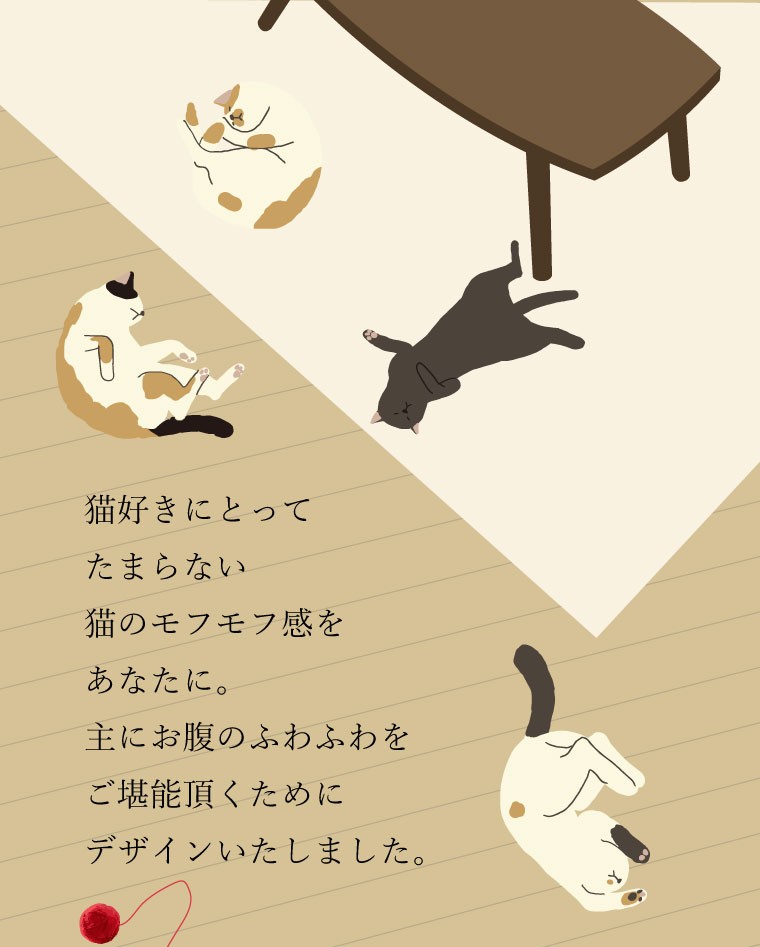 猫好きにとって
たまらない
猫のモフモフ感を
あなたに。
主にお腹のふわふわを
ご堪能頂くために
デザインいたしました。